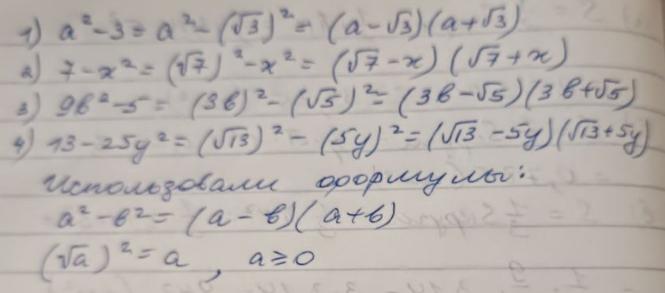 1) a² - 3 = a² - (√3)² = (a - √3)(a + √3)
2) 7 - x² = (√7)² - x² = (√7 - x)(√7 + x)
3) 9b² - 5 = (3b)² - (√5)² = (3b - √5)(3b + √5)
4) 13 - 25y² = (√13)² - (5y)² = (√13 - 5y)(√13 + 5y)
Использовали формулы:
a² - b² = (a - b)(a + b)
(√a)² = a, a ≥ 0